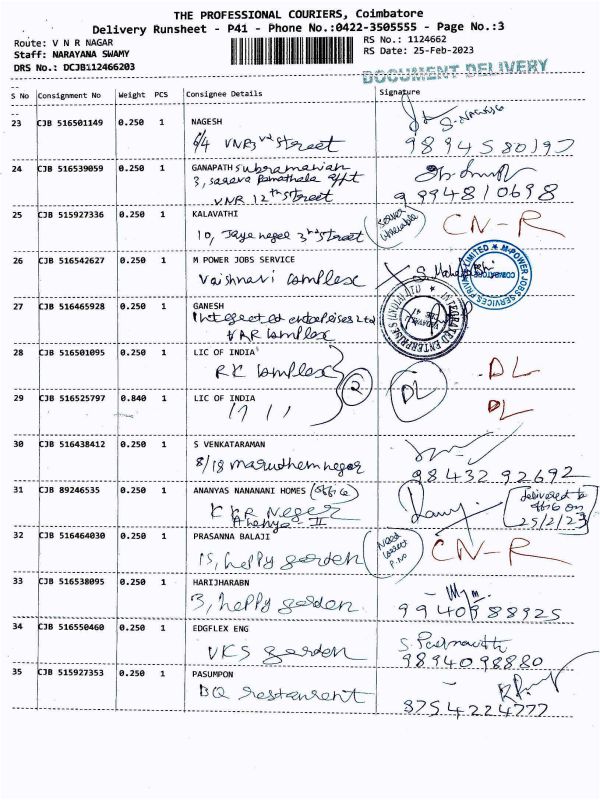 THE PROFESSIONAL COURIERS, Coimbatore
Delivery Runsheet - P41 - Phone No.:0422-3505555 - Page No.:3
Route: V N R NAGAR
RS No.: 1124662
Staff: NARAYANA SWAMY
RS Date: 25-Feb-2023
DRS No.: DCJB112466203
DOCUMENT DELIVERY
S No Consignment No Weight PCS Consignee Details Signature
23 CJB 516501149 0.250 1 NAGESH
6/4 VNR 3rd Street
S. NAGESG
9894580197
24 CJB 516539059 0.250 1 GANAPATH Subramanian
3, Sarava Pamathala Appt
VNR 12th Street
9994810698
25 CJB 515927336 0.250 1 KALAVATHI
10, Jaya neger 3rd Street
CN-R
26 CJB 516542627 0.250 1 M POWER JOBS SERVICE
Vaishnavi Complex
M-POWER JOBS SERVICES PRIVATE LIMITED
COIMBATORE
27 CJB 516465928 0.250 1 GANESH
Integrected enterprises Ltd
VAR Complex
INTEGRATED ENTERPRISES (INDIA) LTD
28 CJB 516501095 0.250 1 LIC OF INDIA
RK Complex
DL
29 CJB 516525797 0.840 1 LIC OF INDIA
2
DL
DL
30 CJB 516438412 0.250 1 S VENKATARAMAN
8/18 Maruthem neger
9843292692
31 CJB 89246535 0.250 1 ANANYAS NANANANI HOMES (office)
KKR Neger
Ananya II
delivered to
office on
25/2/23
32 CJB 516464030 0.250 1 PRASANNA BALAJI
15, heppy garden
Need
correct
P.no
CN-R
33 CJB 516538095 0.250 1 HARIJHARABN
3, heppy garden
9940988925
34 CJB 516550460 0.250 1 EDGFLEX ENG
VKS garden
9894098880
35 CJB 515927353 0.250 1 PASUMPON
BQ restaurent
8754224777